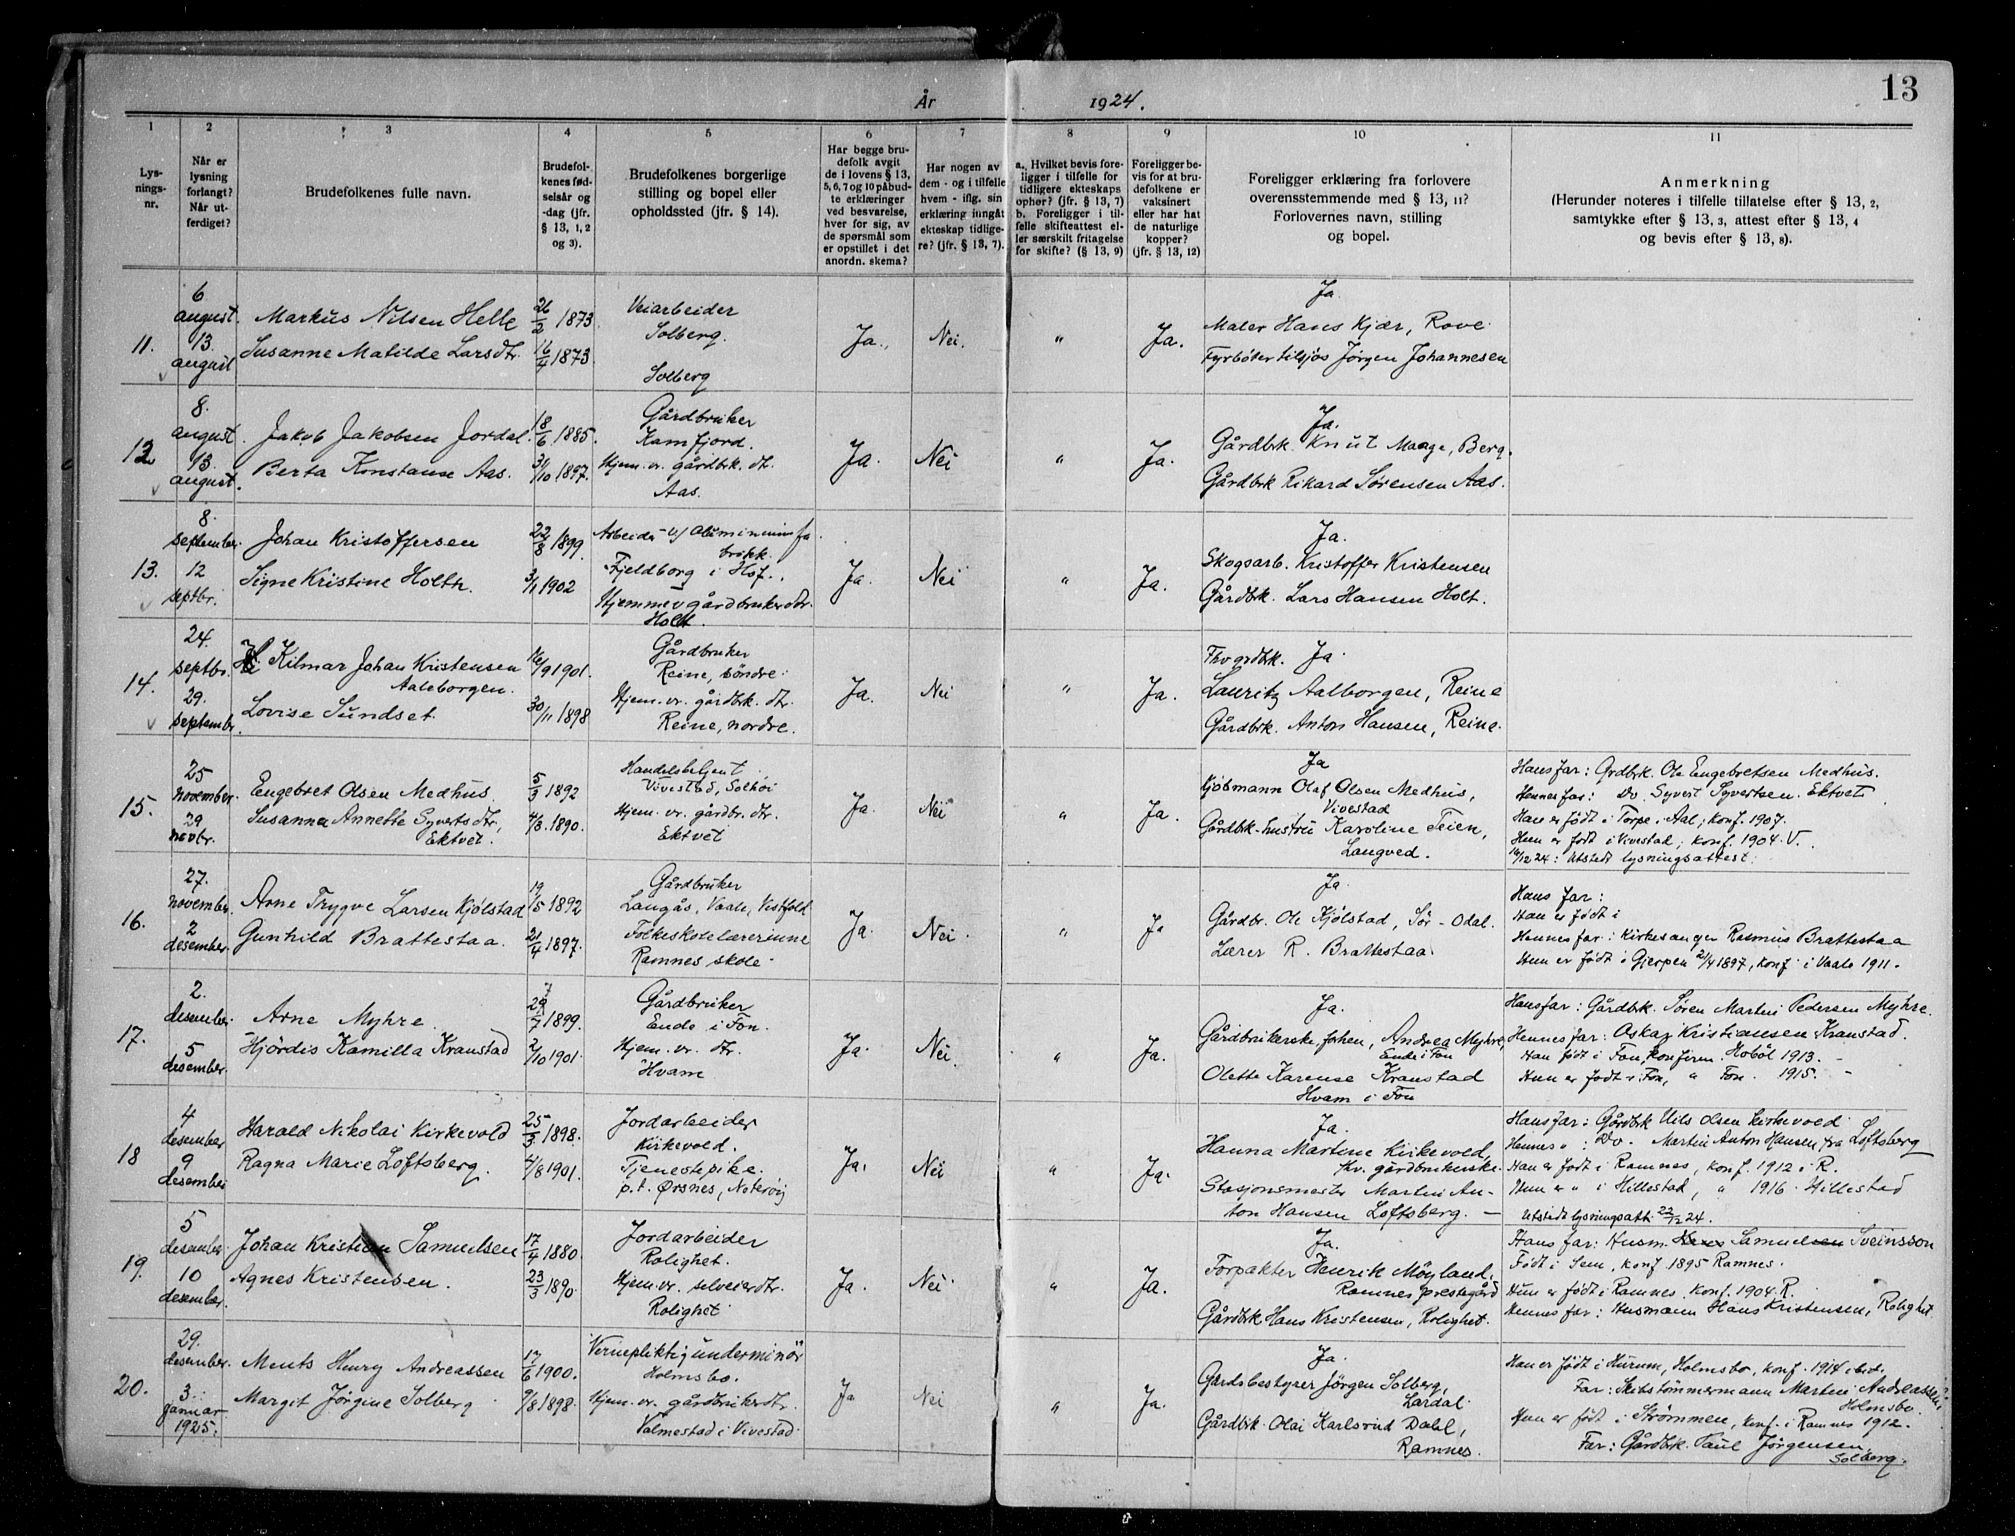 13
År 1924.
1 2 3 4 5 6 7 8 9 10 11
Lys-
nings-
nr.
Når er
lysning
forlangt?
Når ut-
ferdiget?
Brudefolkenes fulle navn.
Brudefol-
kenes fød-
selsår og
-dag (jfr.
§ 13, 1, 2
og 3).
Brudefolkenes borgerlige
stilling og bopel eller
opholdssted (jfr. § 14).
Har begge bru-
defolk avgit
de i lovens § 13,
5, 6, 7 og 10 påbud-
te erklæringer
ved besvarelse,
hver for sig, av
de spørsmål som
er opstillet i det
anordn. skema?
Har nogen av
dem - og i tilfelle
hvem - iflg. sin
erklæring inngåt
ekteskap tidlige-
re? (jfr. § 13, 7).
a. Hvilket bevis fore-
ligger i tilfelle for
tidligere ekteskaps
ophør? (jfr. § 13, 7)
b. Foreligger i til-
felle skifteattest el-
ler særskilt fritagelse
for skifte? (§ 13, 9)
Foreligger be-
vis for at bru-
defolkene er
vaksinert
eller har hat
de naturlige
kopper?
(jfr. § 13, 12)
Foreligger erklæring fra forlovere
overensstemmende med § 13, 11?
Forlovernes navn, stilling
og bopel.
Anmerkning
(Herunder noteres i tilfelle tillatelse efter § 13, 2,
samtykke efter § 13, 3, attest efter § 13, 4
og bevis efter § 13, 8).
11.
6
august.
13
august
Markus Nilsen Helle
Susanne Matilde Larsdtr.
26/2 1873.
16/4 1873
Veiarbeider
Solberg.
Solberg
Ja.
Nei.
"
Ja.
Ja.
Maler Hans Kjær, Rove.
Fyrbøter tilsjøs Jørgen Johannesen
12
8.
august.
13.
august.
Jakob Jakobsen Jordal.
Berta Konstanse Aas.
18/6 1885.
31/10 1897.
Gårdbruker
Kamfjord.
Hjem. vr. gårdbk. dtr.
Aas.
Ja.
Nei
"
Ja.
Ja.
Gårdbk. Knut Maage, Berg.
Gårdbk Rikard Sørensen Aas.
13.
8.
september.
12
septbr.
Johan Kristoffersen
Signe Kristine Holth.
22/8 1899.
3/11 1902
Arbeider v/ Aluminiumfa
brikk.
Fjeldborg i Hof.
Hjemmev gårdbruker dtr.
Holt.
Ja.
Nei
"
Ja.
Ja.
Skogsarb. Kristoffer Kristensen
Gårdbk. Lars Hansen Holt.
14.
24.
septbr.
29.
september.
Hilmar Johan Kristensen
Aaleborgen.
Lovise Sundset.
16/9 1901.
30/11 1898
Gårdbruker
Reine, søndre.
Hjem. vr. gårdbk. dtr.
Reine, nordre.
Ja.
Nei
"
Ja.
Ja.
Lauritz Aalborgen, Reine
Gårdbk. Anton Hansen, Reine.
15.
25
november.
29
novbr.
Engebret Olsen Medhus.
Susanna Annette Syvertsdtr,
Ektvet.
5/3 1892
4/3 1890.
Handelsbetjent
Vivestad, Solhøi
Hjem. vr. gårdbr. dtr.
Ektvet
Ja.
Nei
"
Ja.
Ja
Kjøbmann Olaf Olsen Medhus,
Vivestad
Gårdbk-hustru Karoline Teien,
Langved.
Hans far: Grdbrk. Ole Engebretsen Medhus.
Hennes far: Do. Syvert Syvertsen. Ektvet
Han er født i Torpe i Aal; konf. 1907.
Hun er født i Vivestad; konf. 1904. V.
16/12 24: Utstedt lysningsattest.
16.
27.
november.
2
desember.
Arne Trygve Larsen Kjølstad
Gunhild Brattestaa.
19/5 1892
21/4 1897.
Gårdbruker
Langås, Vaale, Vestfold
Folkeskolelærerinne
Ramnes skole.
Ja.
Nei.
"
Ja
Ja.
Gårdbr. Ole Kjølstad, Sør-Odal.
Lærer R. Brattestaa.
Hans far:
Han er født i
Hennes far: Kirkesanger Rasmus Brattestaa
Hun er født i Gjerpen 21/4 1897, konf. i Vaale 1911.
17.
2.
desember.
5
desember.
Arne Myhre.
Hjördis Kamilla Kraustad
29/7 1899.
2/10 1901.
Gårdbruker
Ende i Fon.
Hjem. vr. dtr.
Hvam
Ja.
Nei.
"
Ja.
Ja.
Gårdbrukerske Andrea Myhre,
Ende i Fon
Olette Karense Kraustad
Hvam i Fon
Hans far: Gårdbk. Søren Martin Pedersen Myhre.
Hennes far: Oskar Kristiansen Kraustad.
Han født i Fon, Konfirm. Hobøl 1913.
Hun er født i Fon, " Fon. 1915.
18
4
desember
9
desember
Harald Nikolai Kirkevold
Ragna Marie Loftsberg.
25/3 1898.
4/8 1901.
Jordarbeider
Kirkevold.
Tjenestepike.
p.t. Ørsnes, Nøterøy
Ja.
Nei
"
Ja.
Ja.
Hanna Martine Kirkevold,
Kv. gårdbrukerske.
Stasjonsmester Martin An-
ton Hansen Loftsberg.
Hans far: Gårdbk Nils Olsen Kirkevold
Hennes ": Do. Martin Anton Hansen fra Loftsberg
Han er født i Ramnes, konf. 1912 i R.
Hun er " i Hillestad, " 1916 Hillestad
Utstedt lysningsatt. 22/12 24.
19.
5
desember
10
desember.
Johan Kristian Samuelsen
Agnes Kristensen.
17/4 1880.
23/3 1890.
Jordarbeider
Rolighet.
Hjem. vr. selveierdtr.
Rolighet
Ja.
Nei
"
Ja.
Ja.
Forpakter Henrik Møyland,
Ramnes prestegård
Gårdbk Hans Kristensen, Rolighet.
Hans far: Husm. Samuel Sveinsson
Født i Sem, konf 1895 Ramnes.
Hun er født i Ramnes, konf. 1904 R.
Hennes far: Husmann Hans Kristensen, Rolighet
20.
29.
desember.
3.
januar
1925.
Ments Henry Andreassen
Margit Jörgine Solberg
17/6 1900.
9/8 1898.
Verneplikti, underminör
Holmsbo.
Hjem. vr. gårdbrukerdtr.
Valmestad i Vivestad.
Ja
Nei
"
Ja.
Ja.
Gårdsbestyrer Jörgen Solberg,
Lardal.
Gårdbk. Olai Karlsrud Dahl,
Ramnes.
Han er født i Hurum, Holmsbo, konf. 1914
Far: Skibstömmermann Martin Andreassen,
Holmsbo.
Hun er født i Strømmen, konf. i Ramnes 1912.
Far: Gårdbk. Paul Jørgensen
Solberg.